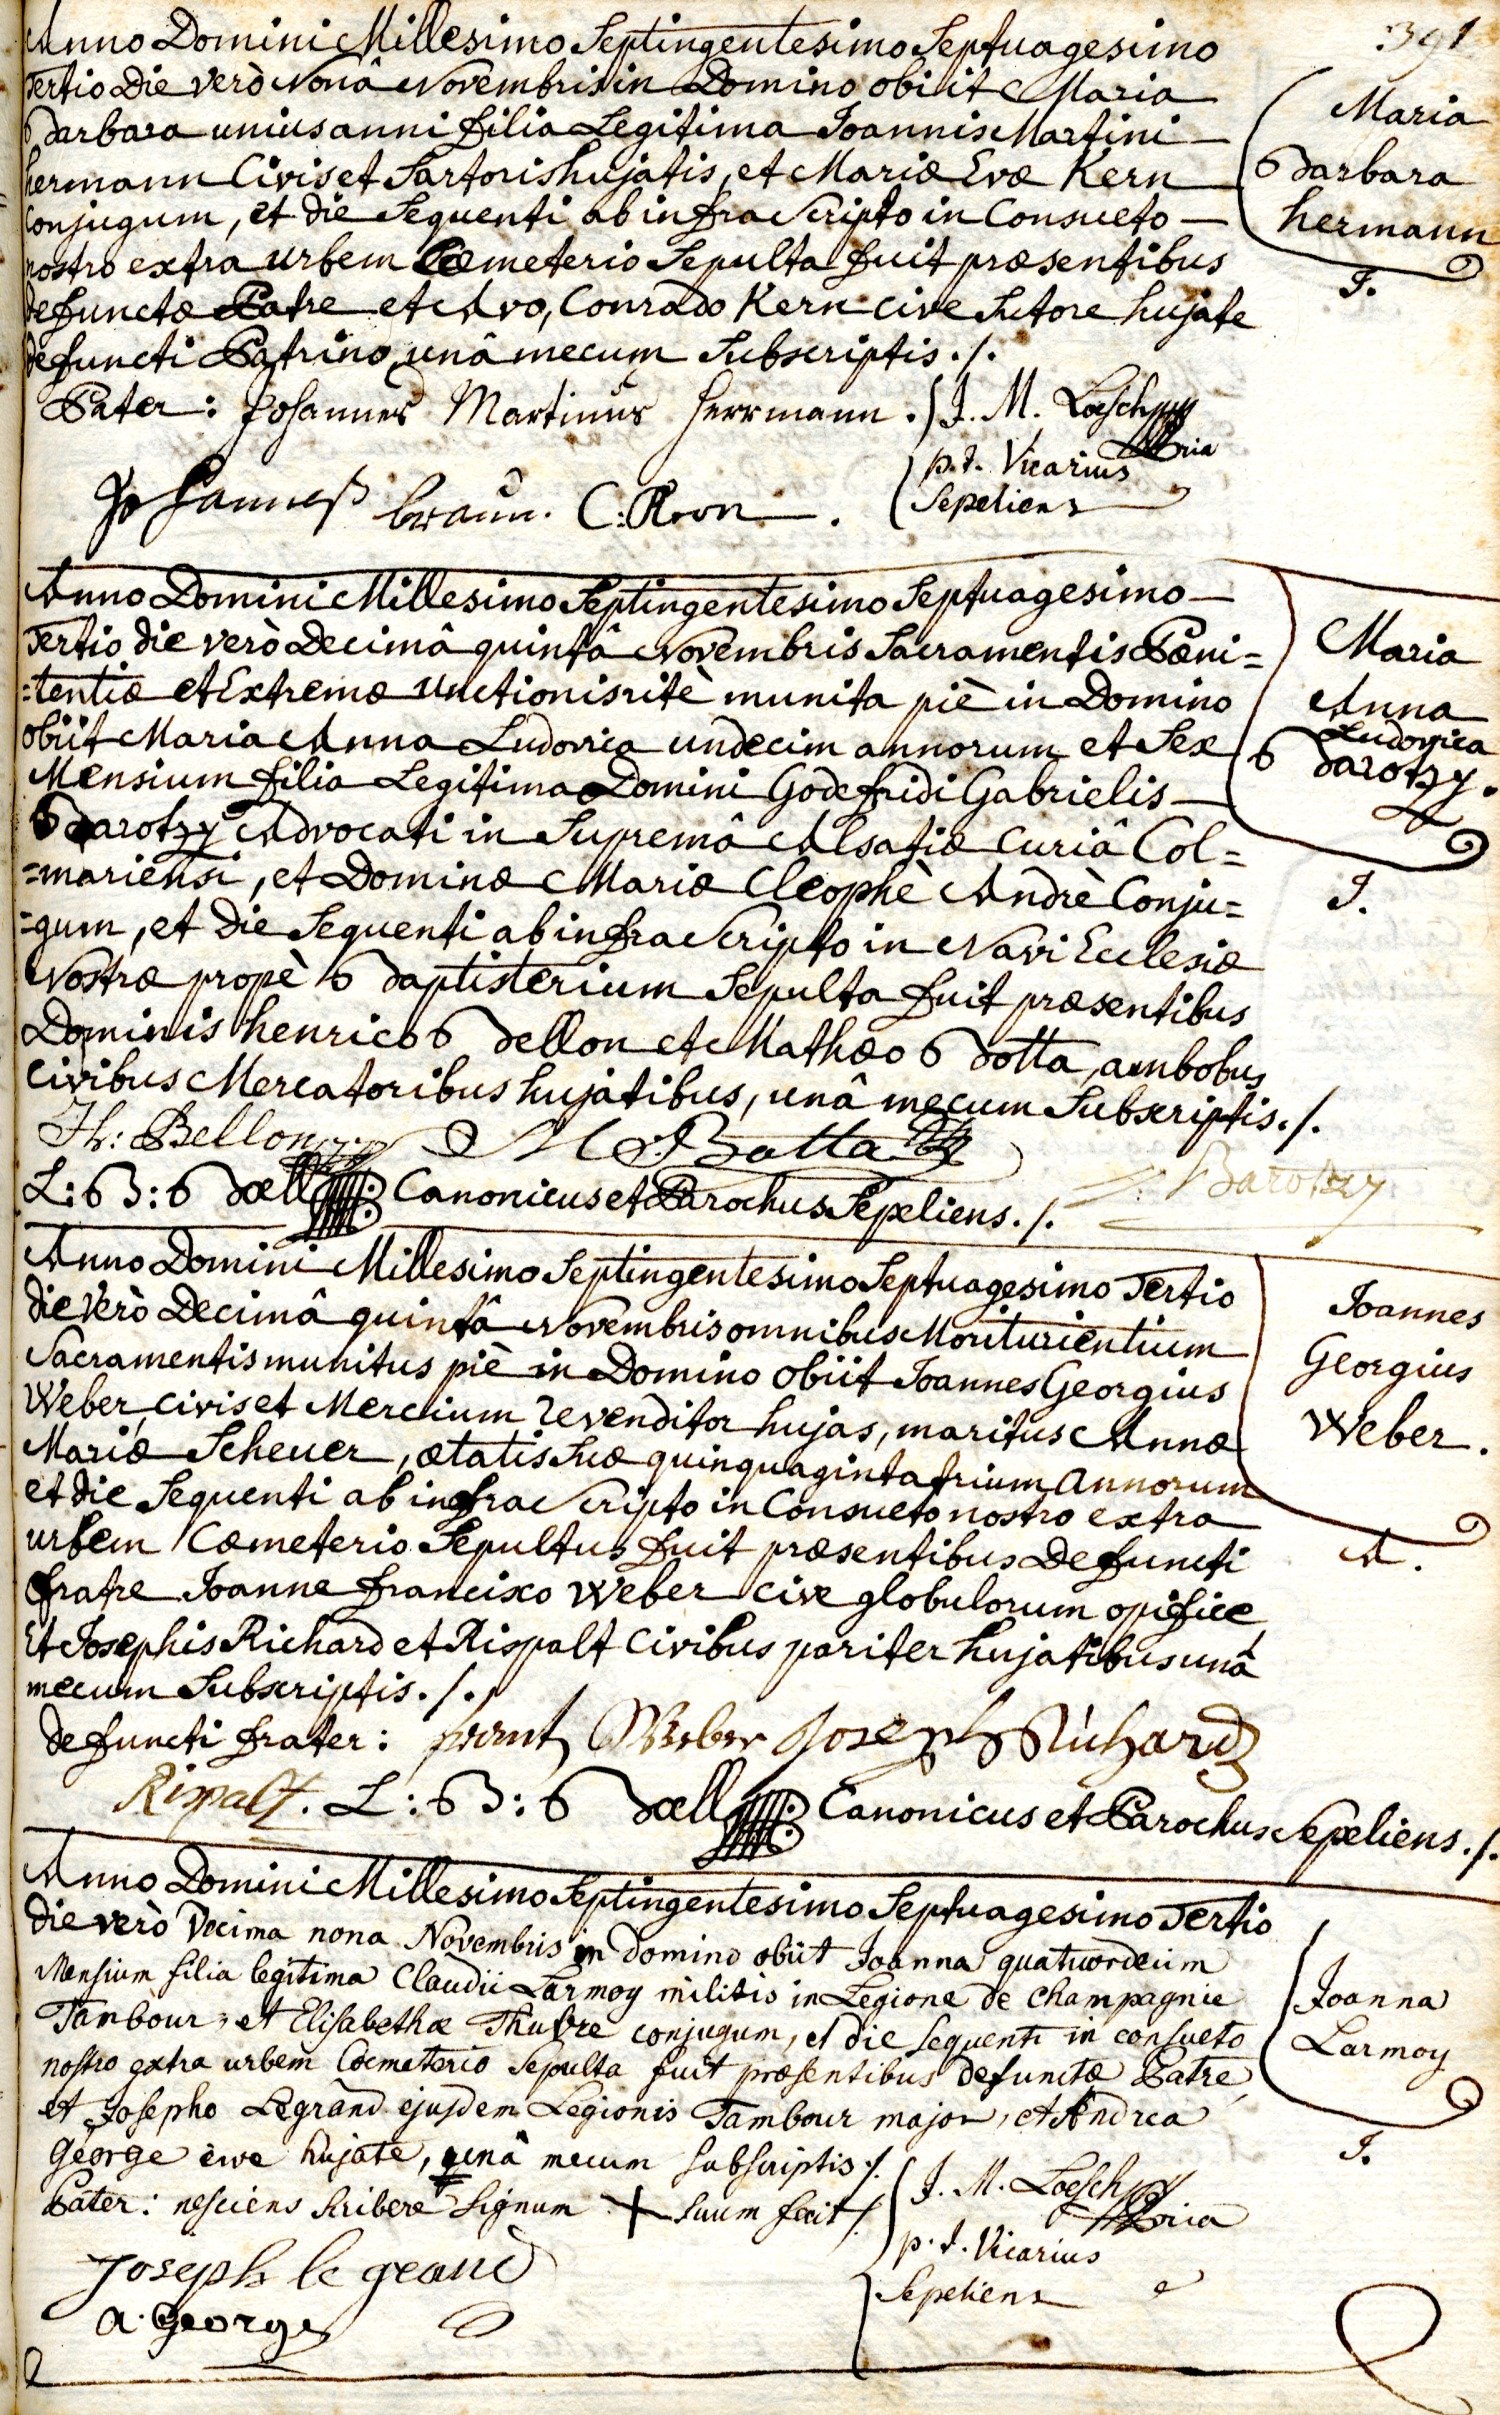 391
Anno Domini Millesimo Septingentesimo Septuagesimo
Tertio Die verò Nonâ Novembris in Domino obiit Maria
Barbara unius anni filia Legitima Joannis Martini
hermann Civis et Sartoris hujatis, et Mariæ Evæ Kern
Conjugum, et die Sequenti ab infra Scripto in Consueto
nostro extra urbem Cæmeterio Sepulta fuit præsentibus
defunctæ Patre et Avo, Conrado Kern cive Sutore hujate
defuncti Patrino, unâ mecum Subscriptis ./.
Maria
Barbara
hermann
J.
Pater: Johannes Martinus Herrmann.
J. M. Loesch
p. t. Vicarius
Sepeliens
Johannes braun. C: Kern.
Anno Domini Millesimo Septingentesimo Septuagesimo
Tertio die verò Decimâ quintâ Novembris Sacramentis Pæni=
=tentiæ et Extremæ unctionis ritè munita piè in Domino
obiit Maria Anna Ludovica undecim annorum et Sex
Mensium filia Legitima Domini Godefridi Gabrielis
Barotzy Advocati in Supremâ Alsatiæ Curiâ Col=
=mariensi, et Dominæ Mariæ Cleophè Andrè Conju=
=gum, et die Sequenti ab infra Scripto in Navi Ecclesiæ
Nostræ propè Baptisterium Sepulta fuit præsentibus
Dominis henrico Bellon et Mathæo Botta, ambobus
Civibus Mercatoribus hujatibus, unâ mecum Subscriptis ./.
Maria
Anna
Ludovica
Barotzy.
J.
H: Bellon M Botta
Barotzy
L: B: Bœll Canonicus et Parochus Sepeliens ./.
Anno Domini Millesimo Septingentesimo Septuagesimo Tertio
die verò Decimâ quintâ Novembris omnibus Moriturientium
Sacramentis munitus piè in Domino obiit Joannes Georgius
Weber, civis et Mercium revenditor hujas, maritus Annæ
Mariæ Scheuer, ætatis Suæ quinquaginta trium annorum
et die Sequenti ab infra Scripto in Consueto nostro extra
urbem Cæmeterio Sepultus fuit præsentibus Defuncti
fratre Joanne francisco Weber cive globulorum opifice,
Et Josephis Richard et Rispalt Civibus pariter hujatibus unâ
mecum Subscriptis ./.
Joannes
Georgius
Weber.
A.
defuncti frater: frantz Weber Joseph Richard
Rispalt. L: B: Bœll Canonicus et Parochus Sepeliens ./.
Anno Domini Millesimo Septingentesimo Septuagesimo Tertio
die verò Decima nona Novembris in Domino obiit Joanna quatuordecim
Mensium filia legitima Claudii Larmoy militis in Legione de Champagnie
Tambour, et Elisabethæ Thuvre conjugum, et die sequenti in consueto
nostro extra urbem Coemeterio Sepulta fuit præsentibus defunctæ Patre,
et Josepho Legrand ejusdem Legionis Tambour major, et Andrea
George cive hujate, unâ mecum subscriptis ./.
Joanna
Larmoy
J.
Pater: nesciens scribere Signum + suum fecit ./.
J. M. Loesch
p. t. Vicarius
Sepeliens
Joseph le grand
a. george